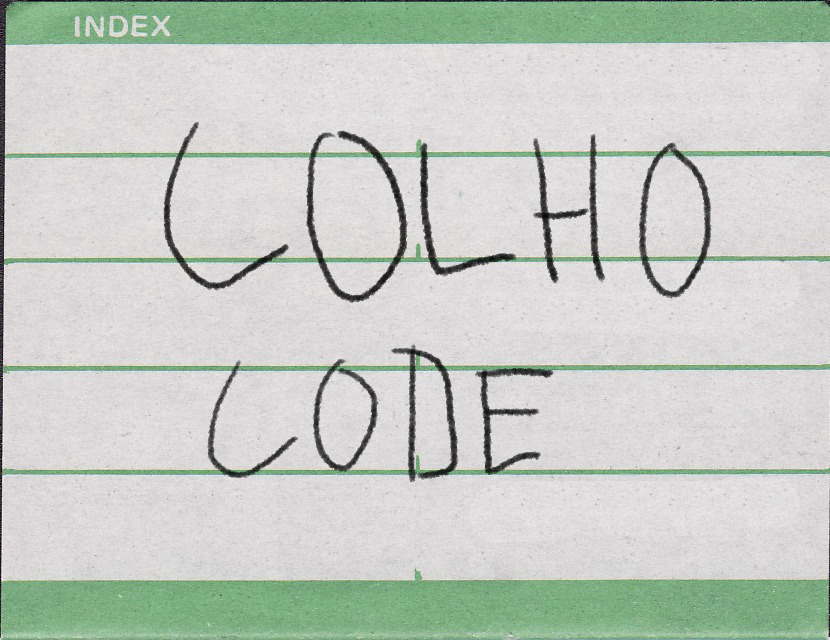 INDEX
COLHO
CODE